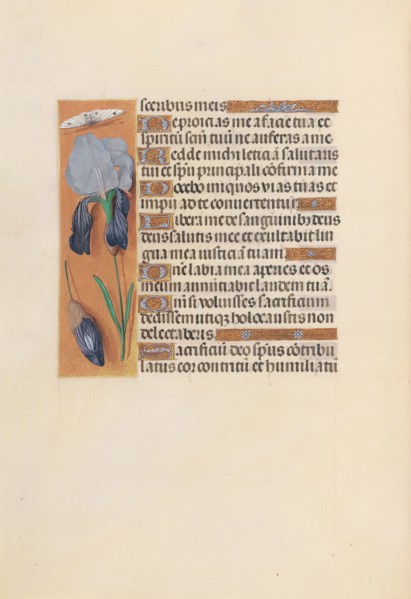 sceribus meis
Ne proicias me a facie tua et
spiritū scm̄ tuū ne auferas a me
Redde michi leticiā salutaris
tui et spū principali cōfirma me
Docebo iniquos vias tuas et
impii ad te convertentur
Libera me de sanguinib; deus
deus salutis mee et exultabit lin
gua mea iusticiā tuam
Dn̄e labia mea aperies et os
meum annūciabit laudem tuā
Qm̄ si voluisses sacrificium
dedissem utiq; holocaustis non
delectaberis
Sacrificiū deo spūs cōtribu
latus cor contritū et humiliatū